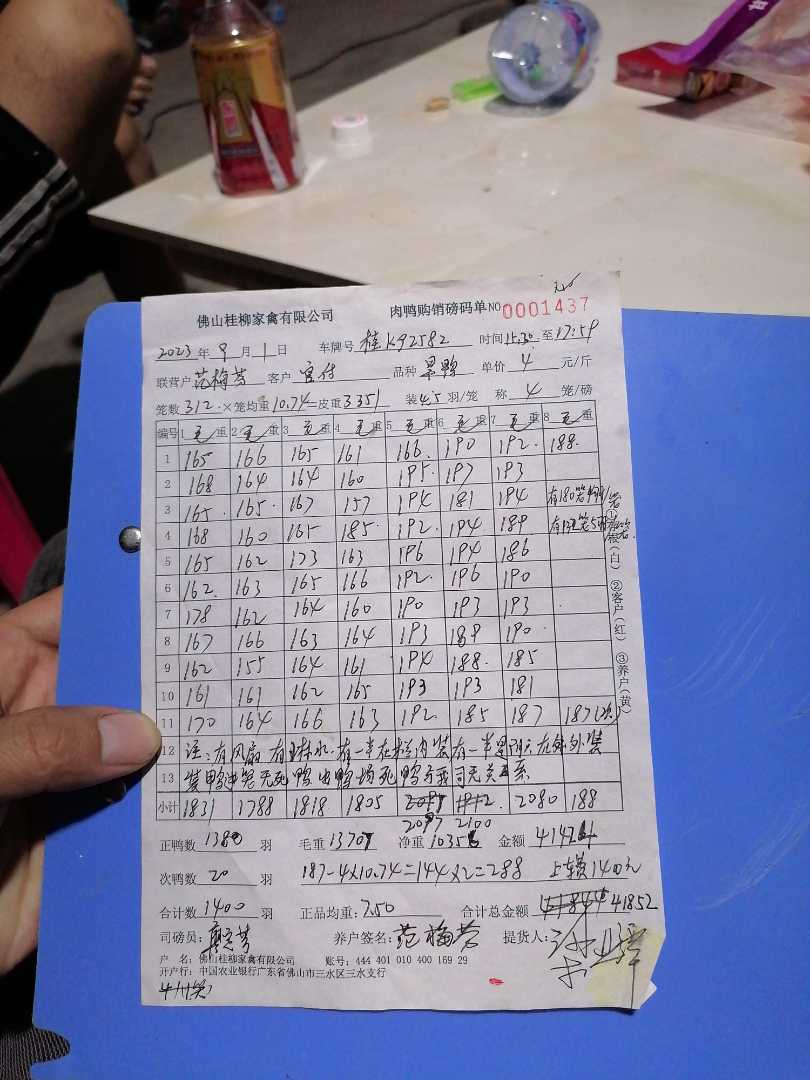 佛山桂柳家禽有限公司 肉鸭购销磅码单 NO 0001437
2023年9月1日 车牌号 桂K92582 时间15.30至17:59
联营户 范梅芳 客户 品种 单价 4 元/斤
笼数 312 ×笼均重 10.74 =皮重 3351 装4.5羽/笼 称 4 笼/磅
编号 1毛重 2毛重 3毛重 4毛重 5毛重 6毛重 7毛重 8毛重
1 165 166 165 161 166 190 192 188
2 168 164 164 160 195 197 193
3 165 165 167 157 194 181 194
4 168 160 165 185 192 194 189
5 165 162 173 163 196 194 186
6 162 163 165 166 192 196 190
7 178 162 164 160 190 193 193
8 167 166 163 164 193 189 190
9 162 155 164 161 194 188 185
10 161 161 162 165 193 193 181
11 170 164 166 163 192 185 187 187(次)
12 注:有风扇 有 淋水 有一半在栏内装 有一半 在 外装
13 装鸭 笼无死鸭 鸭场死鸭与我司无关系
小计 1831 1788 1818 1805 2080 188
2097 2100
正鸭数 1380 羽 毛重 13707 净重 10356 金额 41424
次鸭数 20 羽 187-4×10.74=144×2=288 上车费140元
合计数 1400 羽 正品均重: 7.50 合计总金额 41852
司磅员: 养户签名: 范梅芳 提货人:
户 名: 佛山桂柳家禽有限公司 账号: 444 401 010 400 169 29
开户行: 中国农业银行广东省佛山市三水区三水支行
①根(白) ②客户(红) ③养户(黄)